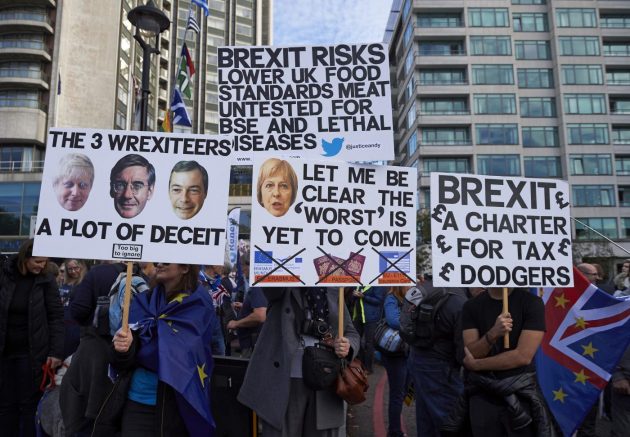 BREXIT RISKS
LOWER UK FOOD
STANDARDS MEAT
UNTESTED FOR
BSE AND LETHAL
DISEASES
@justiceandy
THE 3 WREXITEERS
A PLOT OF DECEIT
Too big
to ignore
LET ME BE
CLEAR THE
'WORST' IS
YET TO COME
BREXIT
A CHARTER
FOR TAX
DODGERS
£
£
£
£
£
£